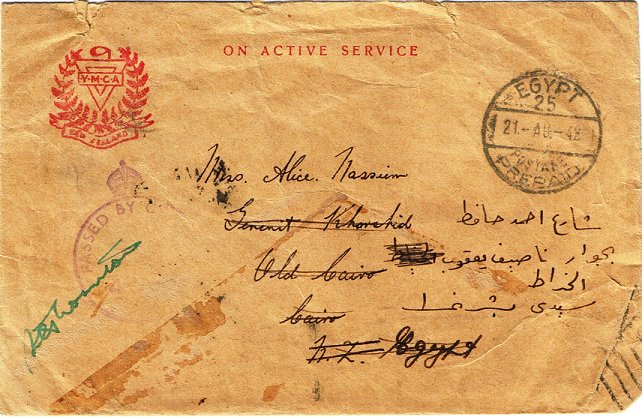 ON ACTIVE SERVICE
Y·M·C·A
NEW ZEALAND
EGYPT
25
21.-AU-42
POSTAGE
PREPAID
PASSED BY
Mrs. Alice Nassim
Khorchid
Old Cairo
Cairo
Egypt
شارع احمد حافظ
بجوار ناصيف يعقوب
الخراط
سيدي بشر